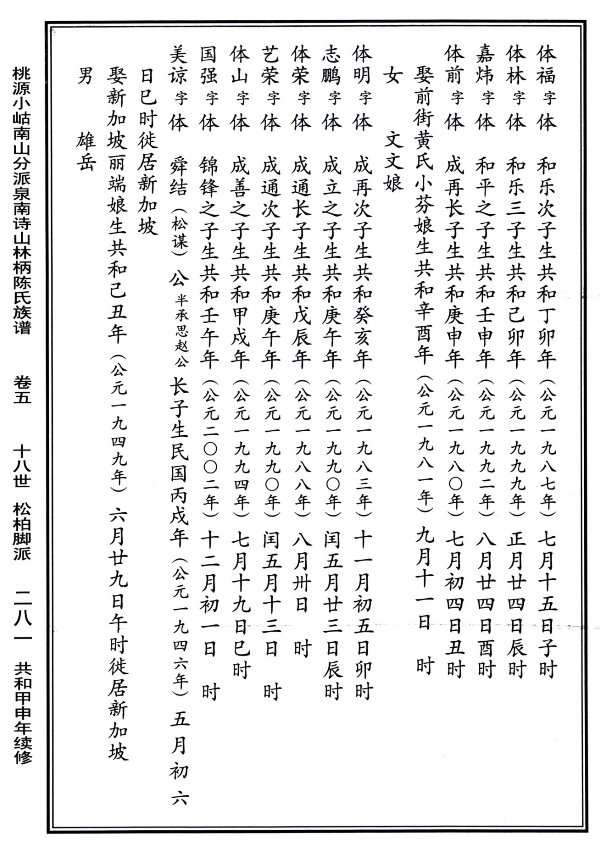 体福字体　和乐次子生共和丁卯年（公元一九八七年）七月十五日子时
体林字体　和乐三子生共和己卯年（公元一九九九年）正月廿四日辰时
嘉炜字体　和平之子生共和壬申年（公元一九九二年）八月廿四日酉时
体前字体　成再长子生共和庚申年（公元一九八〇年）七月初四日丑时
娶前街黄氏小芬娘生共和辛酉年（公元一九八一年）九月十一日　时
女　文文娘
体明字体　成再次子生共和癸亥年（公元一九八三年）十一月初五日卯时
志鹏字体　成立之子生共和庚午年（公元一九九〇年）闰五月廿三日辰时
体荣字体　成通长子生共和戊辰年（公元一九八八年）八月卅日　时
艺荣字体　成通次子生共和庚午年（公元一九九〇年）闰五月十三日　时
体山字体　成善之子生共和甲戌年（公元一九九四年）七月十九日巳时
国强字体　锦锋之子生共和壬午年（公元二〇〇二年）十二月初一日　时
美谅字体　舜结（松谋）公半承思赵公长子生民国丙戌年（公元一九四六年）五月初六
日巳时徙居新加坡
娶新加坡丽端娘生共和己丑年（公元一九四九年）六月廿九日午时徙居新加坡
男　雄岳
桃源小岵南山分派泉南诗山林柄陈氏族谱　卷五　十八世　松柏脚派　二八一　共和甲申年续修